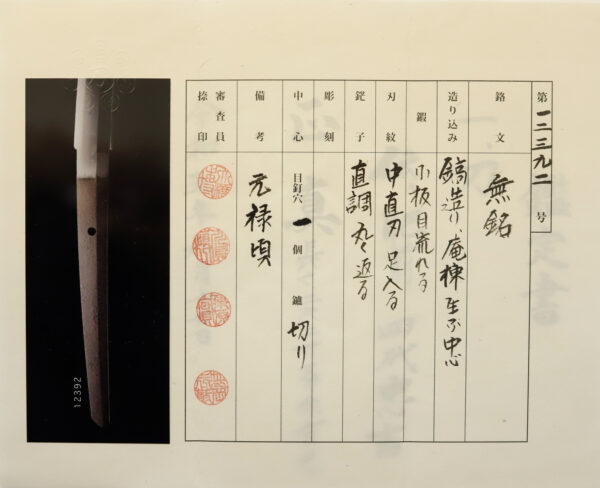 第一二三九二号
銘文 無銘
造り込み 鎬造り、庵棟生ぶ中心
鍛 小板目流れる
刃紋 中直刃 足入る
鋩子 直調 丸く返る
彫刻
中心 目釘穴 一 個 鑢 切り
備考 元禄頃
審査員捺印
12392